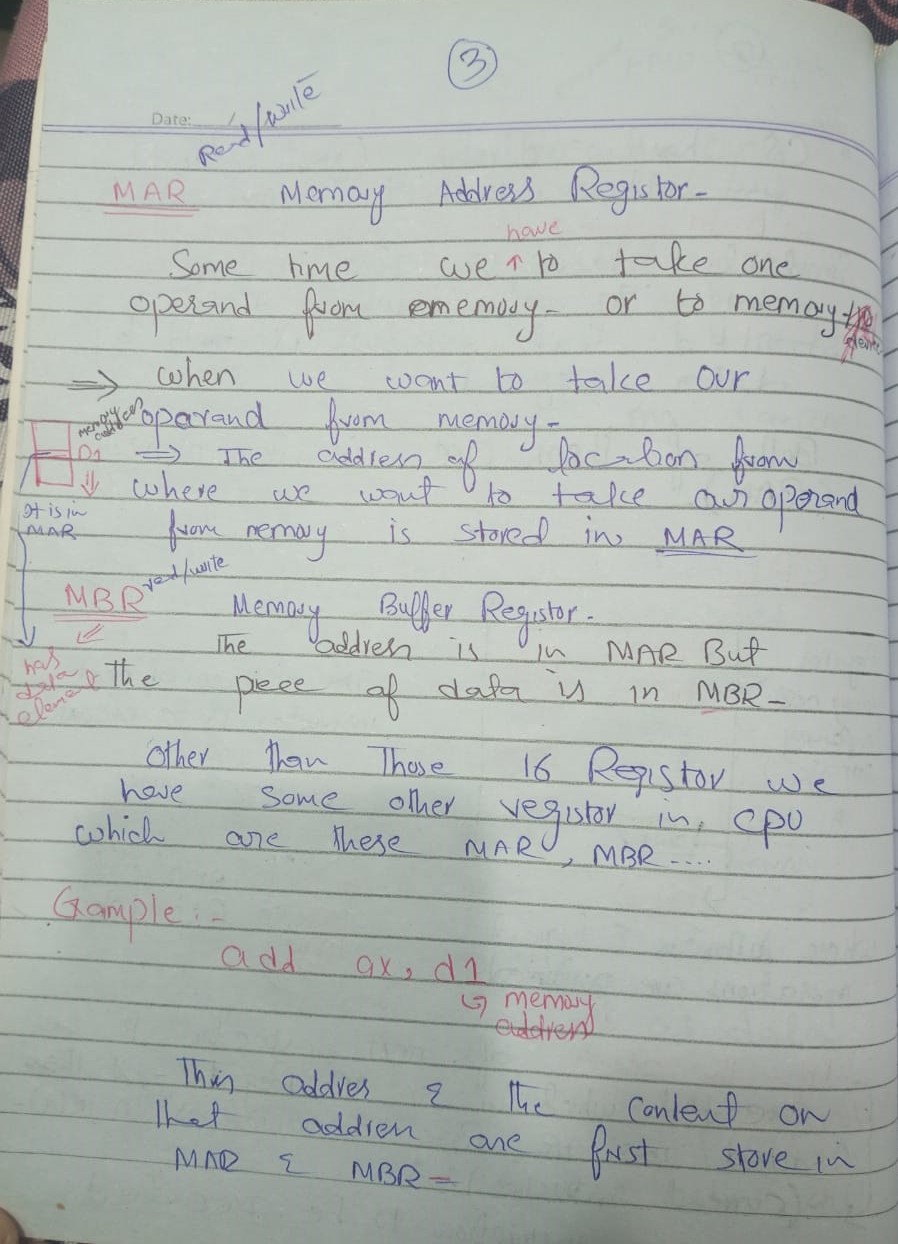 3
Date:
Read/write
MAR Memory Address Registor-
have
Some time we ↑ to take one
operand from ememory- or to memory
⇒ when we want to take our
oparand from memory-
memory
D1
⇒ The address of location from
where we want to take our operand
It is in
MAR
from memory is stored in MAR
MBR read/write Memory Buffer Registor.
The address is in MAR But
has
data
element
The piece of data is in MBR-
Other than Those 16 Registor we
have some other registor in, CPU
which are these MAR, MBR....
Example:-
add ax, d1
↳ memory
address
This addres & the content on
that address are first store in
MAR & MBR-